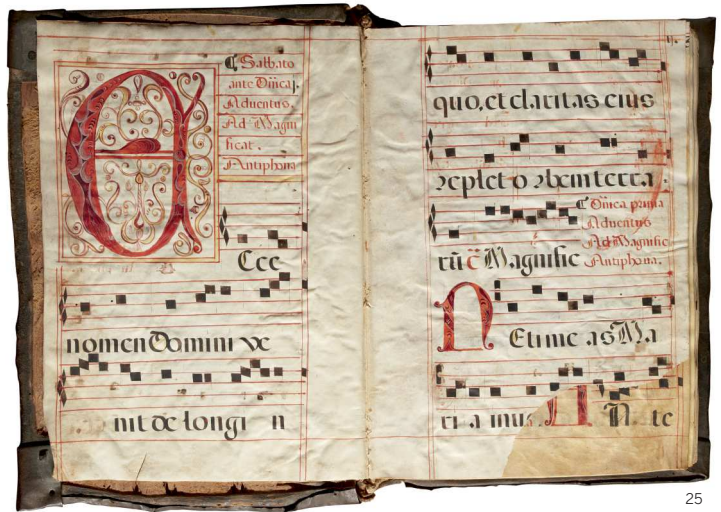 ¶ Sabbato
ante Dñica j.
Aduentus.
Ad Magni
ficat.
Antiphona
E Cce
nomen Domini ve
nit de longi n
quo, et claritas eius
replet orbem terra
rũ ẽ Magnific
¶ Dñica prima
Aduentus
Ad Magnific
Antiphona.
NEtimeas Ma
ri a inus te
25